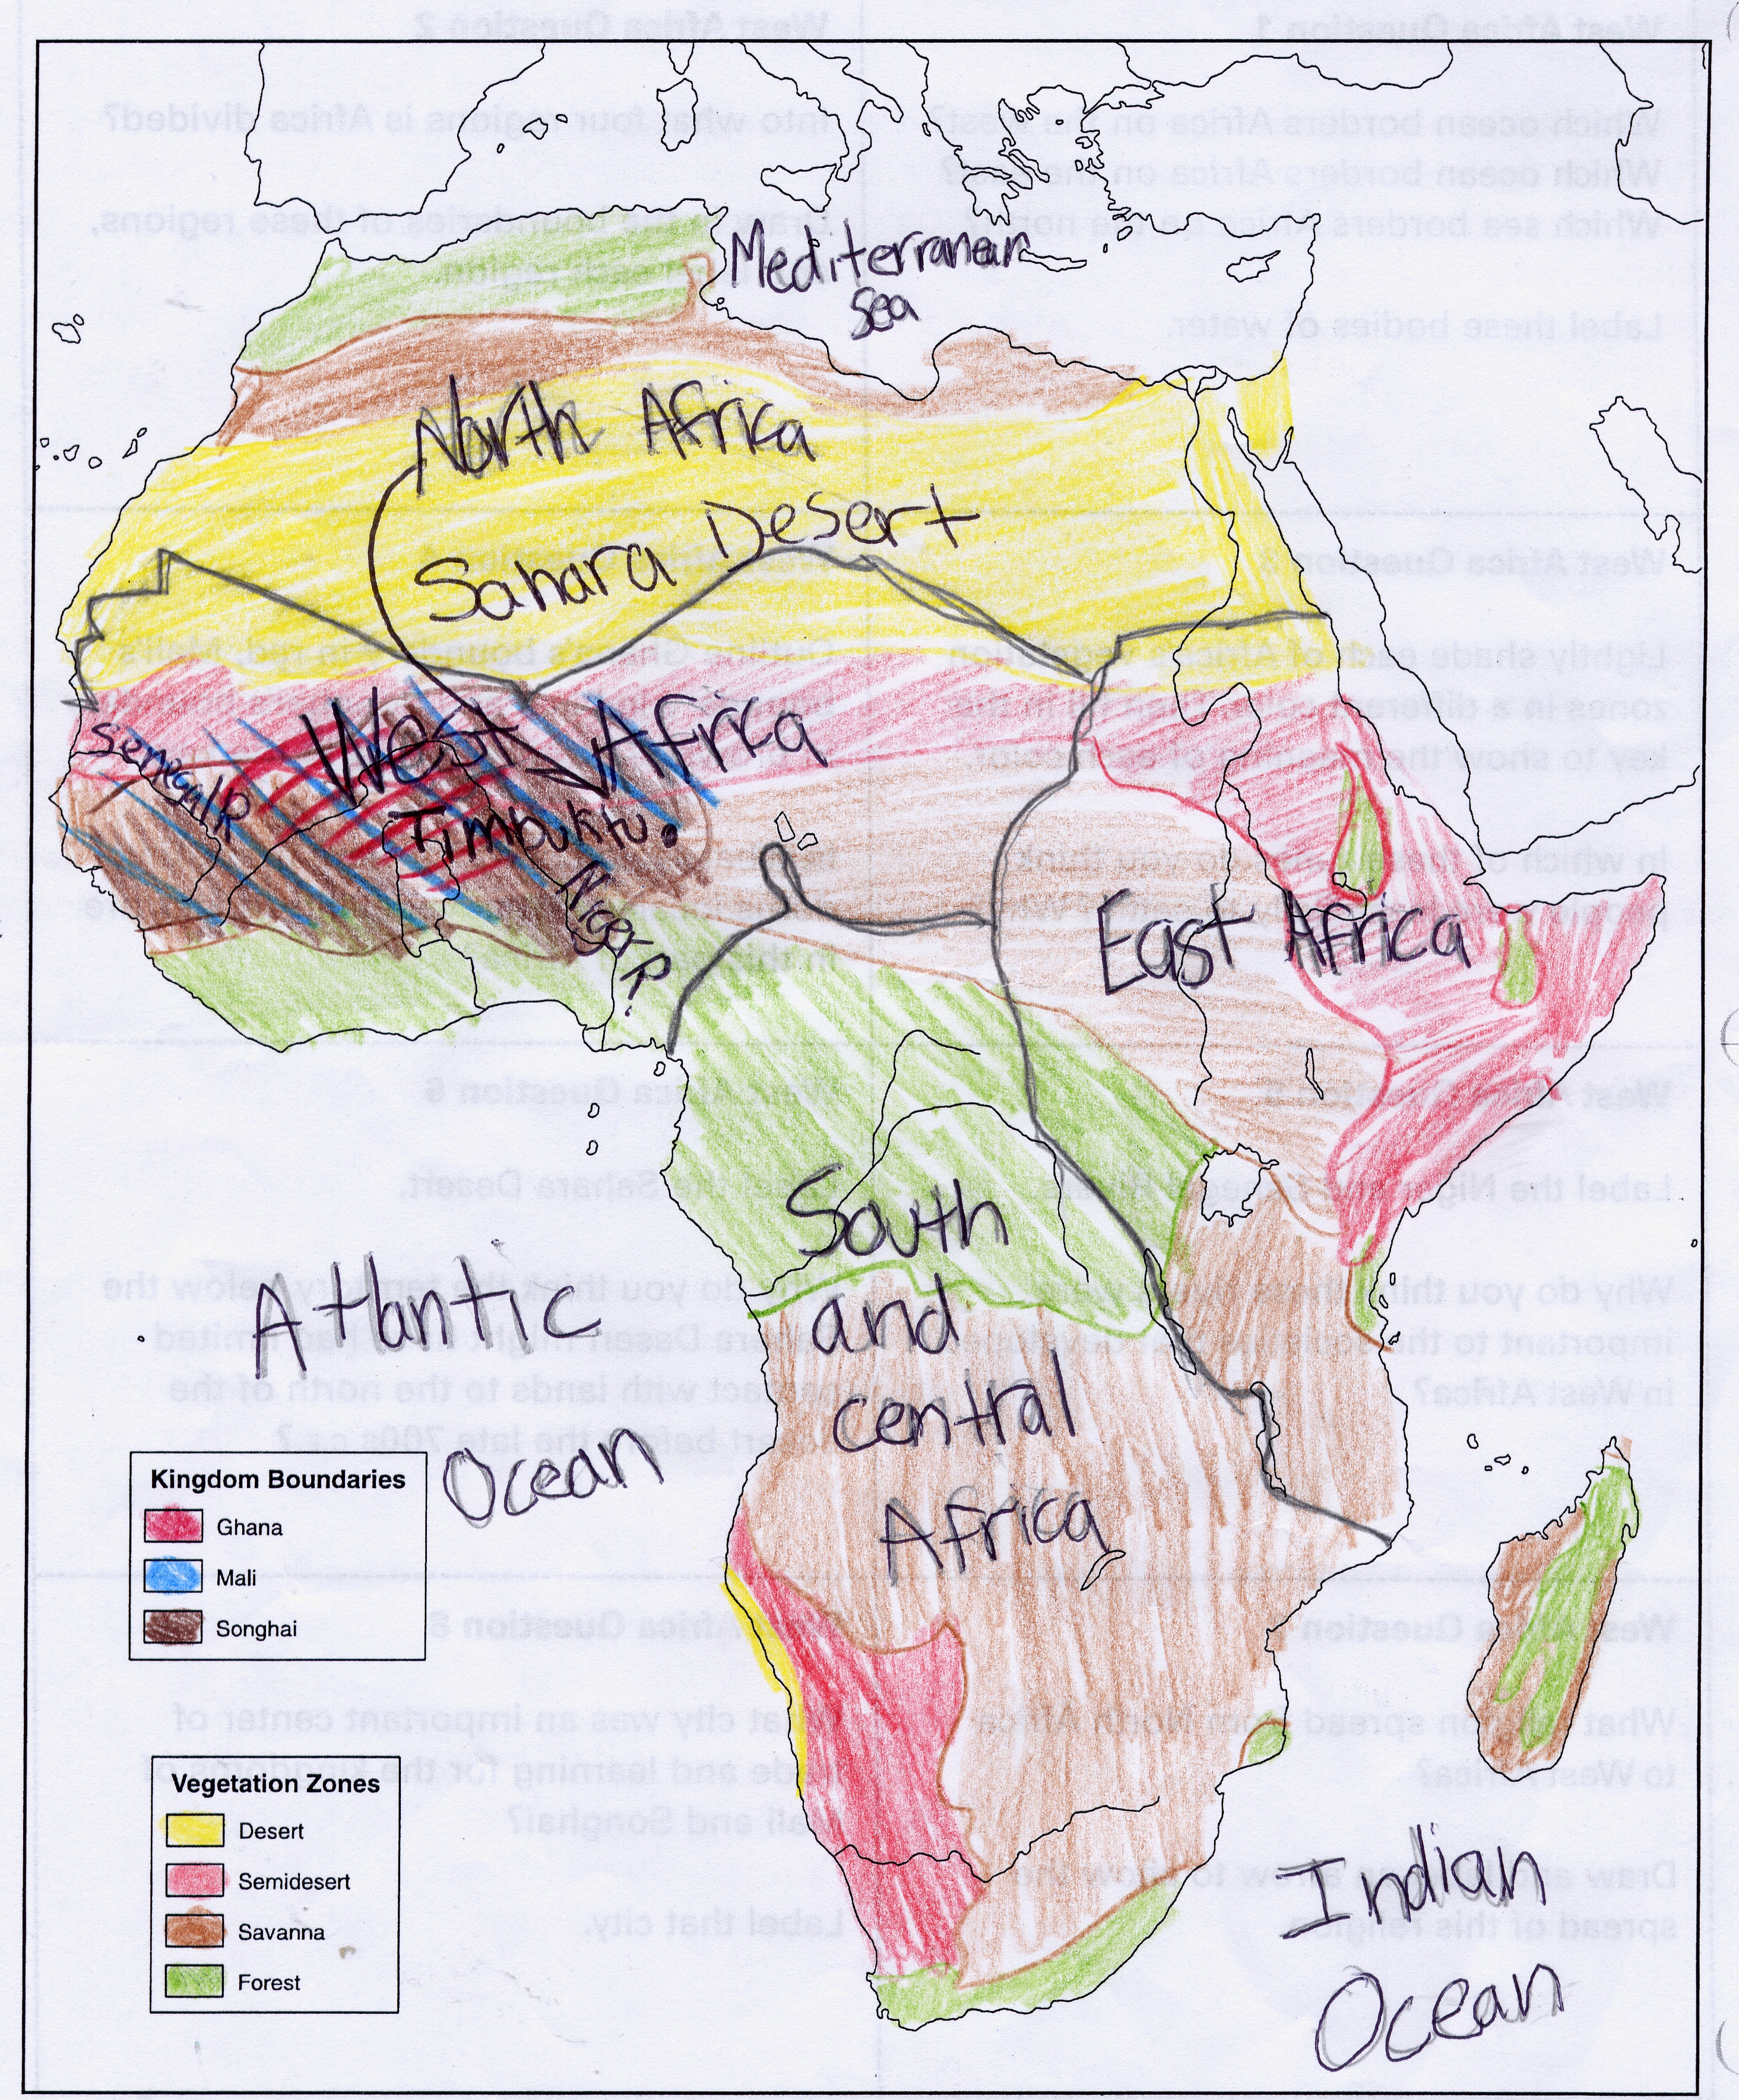 Mediterranean
Sea
North Africa
Sahara Desert
West Africa
Senegal R
Timbuktu.
Niger R.
East Africa
South
and
central
Africa
Atlantic
Ocean
Indian
Ocean
Kingdom Boundaries
Ghana
Mali
Songhai
Vegetation Zones
Desert
Semidesert
Savanna
Forest